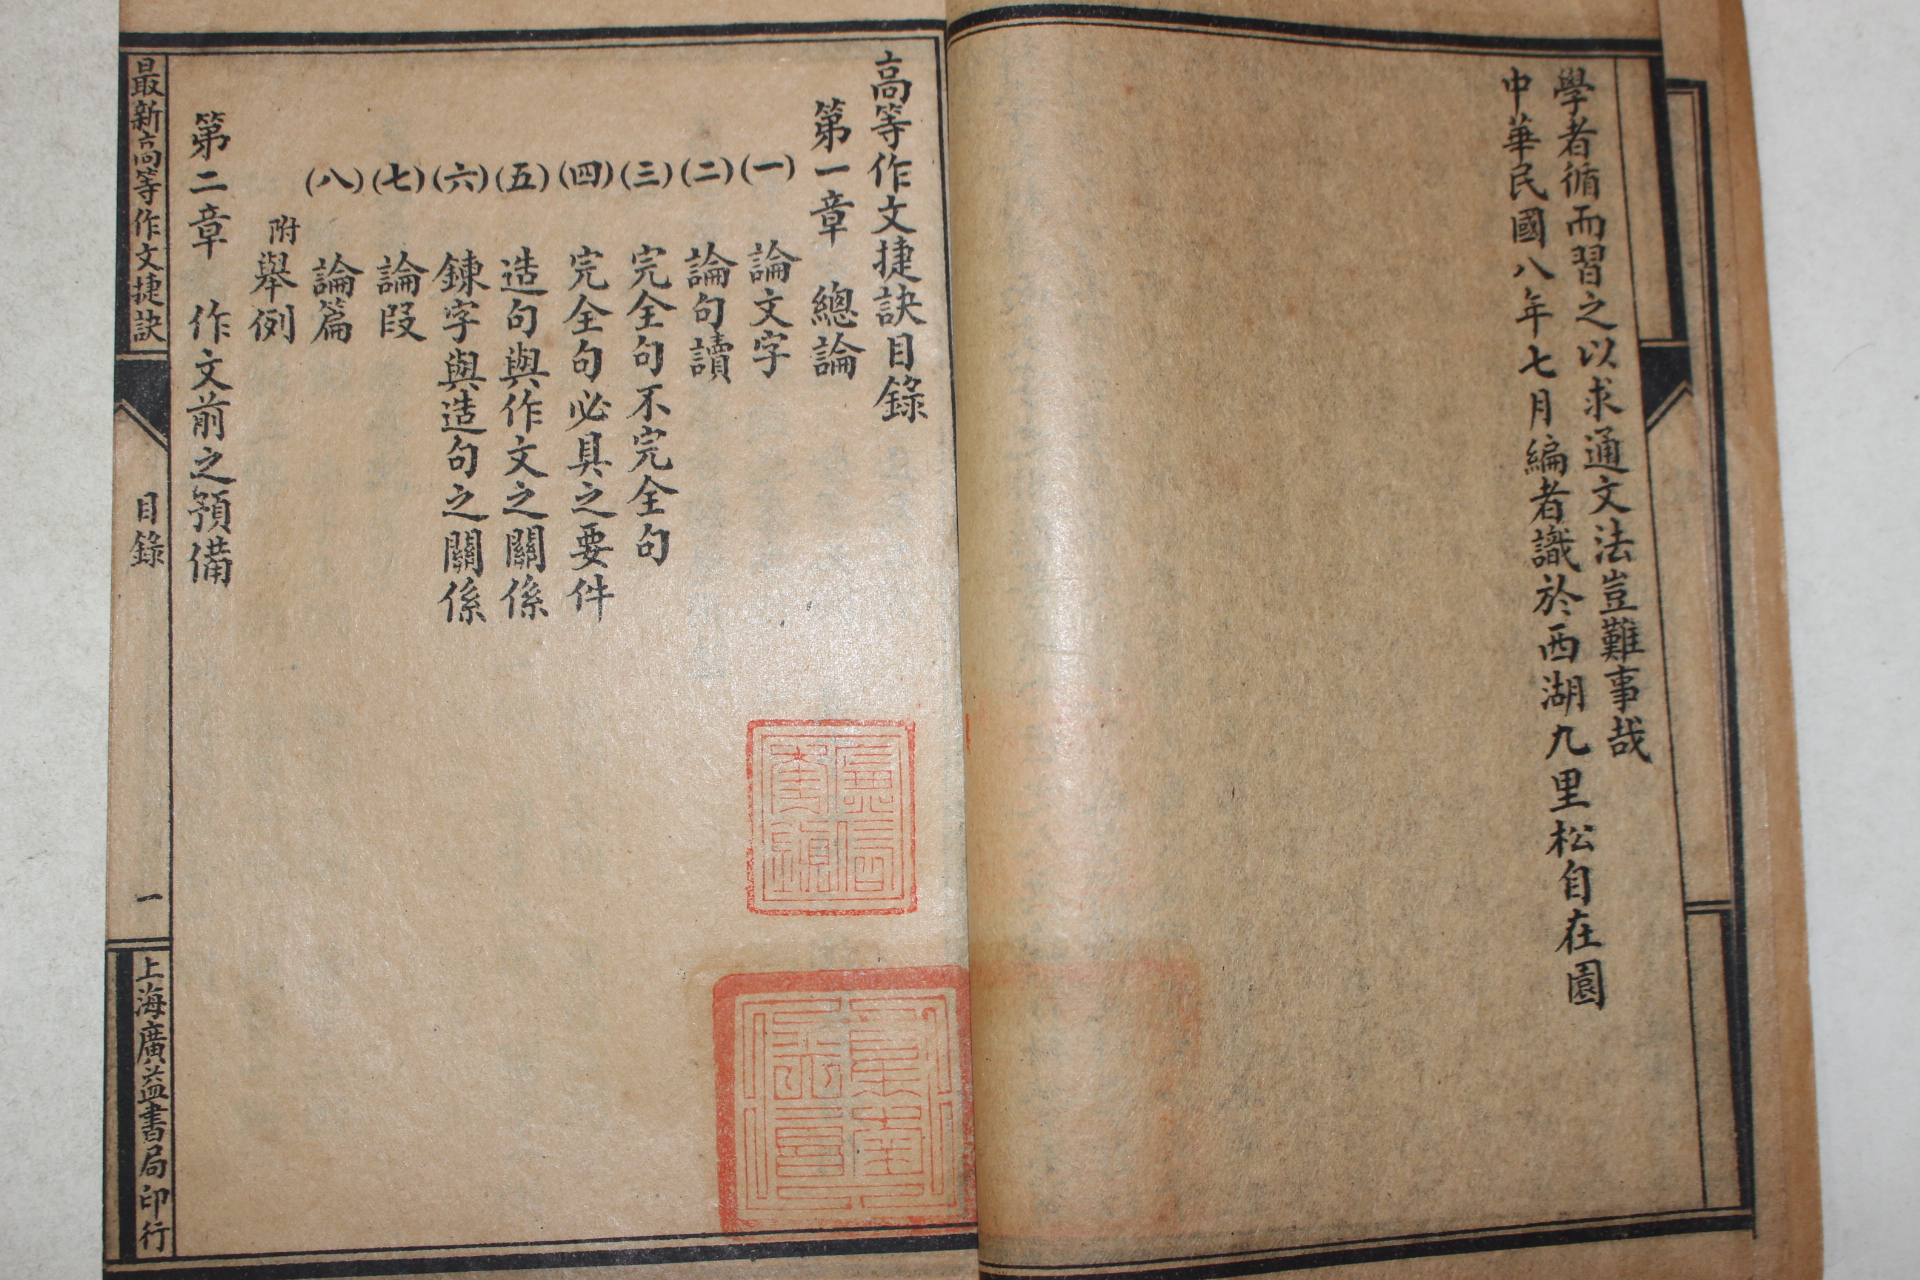 學者循而習之以求通文法豈難事哉
中華民國八年七月編者識於西湖九里松自在園
高等作文捷訣目錄
第一章　總論
(一)　論文字
(二)　論句讀
(三)　完全句不完全句
(四)　完全句必具之要件
(五)　造句與作文之關係
(六)　鍊字與造句之關係
(七)　論段
(八)　論篇
附舉例
第二章　作文前之預備
最新高等作文捷訣
目錄
一
上海廣益書局印行